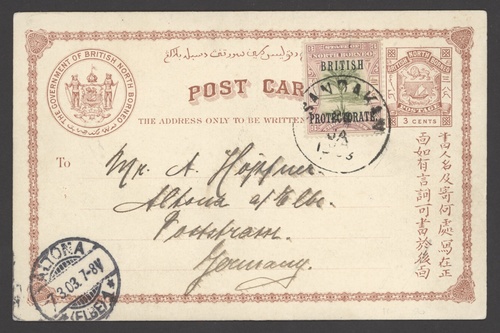 THE GOVERNMENT OF BRITISH NORTH BORNEO
POST CAR
THE ADDRESS ONLY TO BE WRITTEN
BRITISH
PROTECTORATE.
SANDAKAN
JA
BRITISH NORTH BORNEO
POSTAGE
3 CENTS
To
Mr. A. Höpfner.
Altona a/Elbe.
Poststrasse.
Germany.
ALTONA
7.3.03.7-8V
*(ELBE)*
書人名及寄何處寫在正
面如有言詞可書於後面